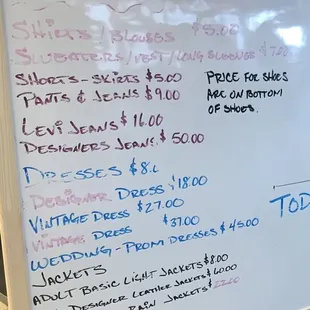 Shirts / Blouses $5.00
Sweaters / Vest / Long Sleeves $7.00
Shorts - Skirts $5.00
Pants & Jeans $9.00
Price for shoes
are on bottom
of shoes.
Levi Jeans $16.00
Designers Jeans $50.00
Dresses $8.
Designer Dress $18.00
Vintage Dress $27.00
Vintage Dress $37.00
Wedding - Prom Dresses $45.00
TOD
Jackets
Adult Basic Light Jackets $8.00
Designer Leather Jackets $60.00
Rain Jackets $22.00